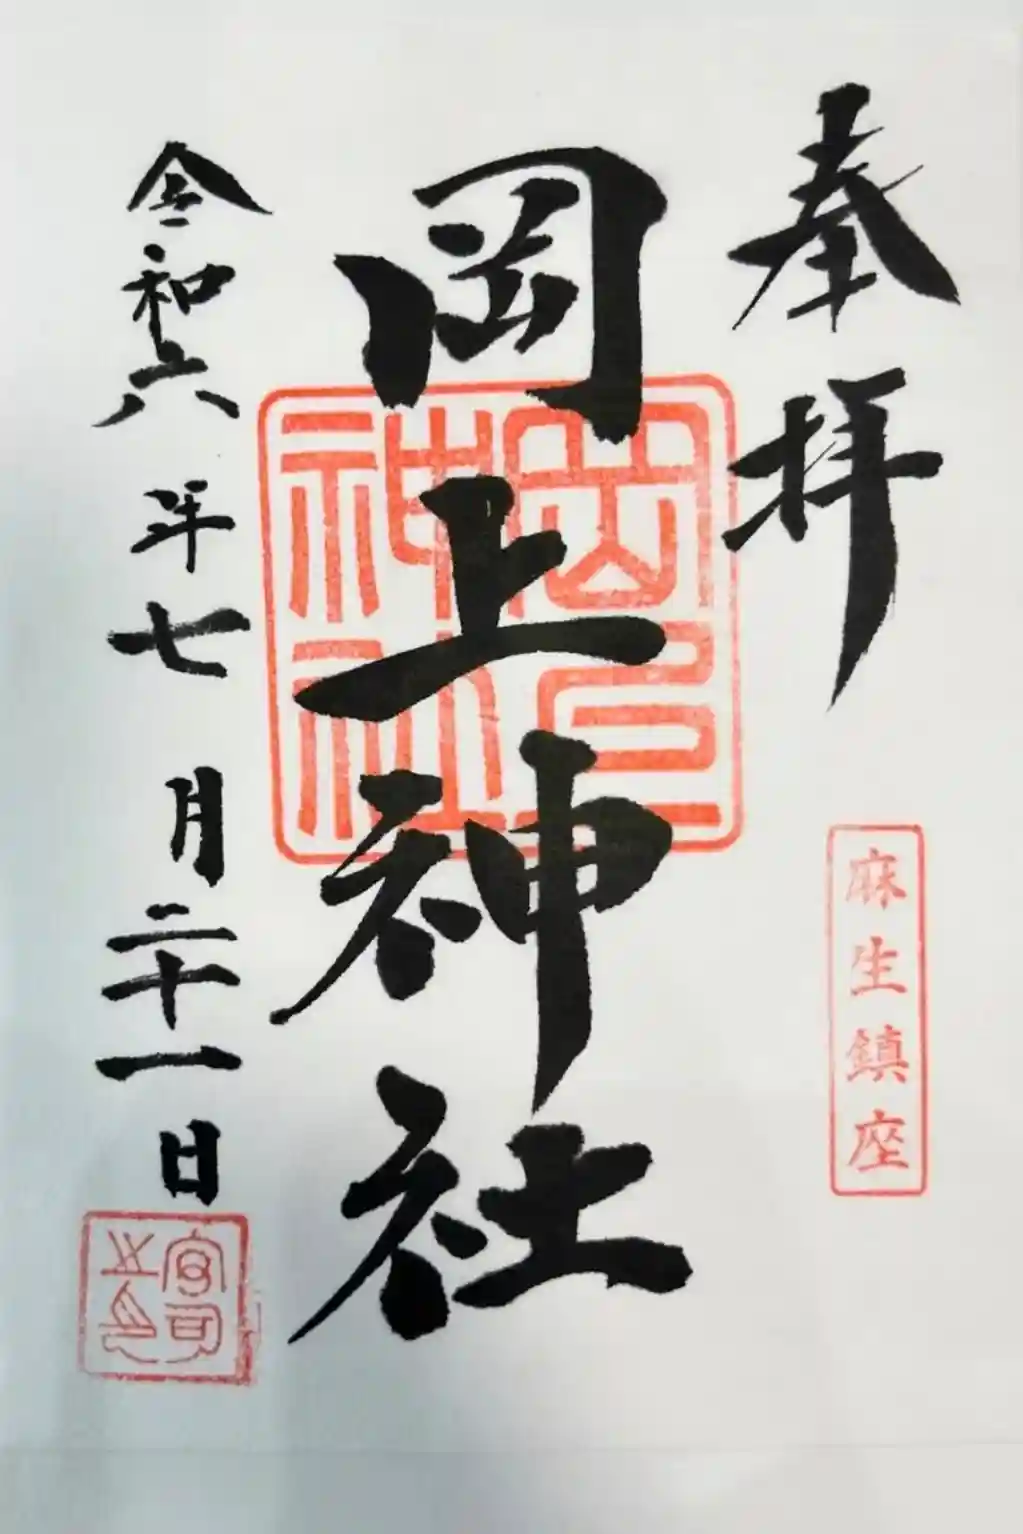 奉拝
麻生鎮座
岡上神社
岡上神社
令和六年七月二十一日
宮司之印